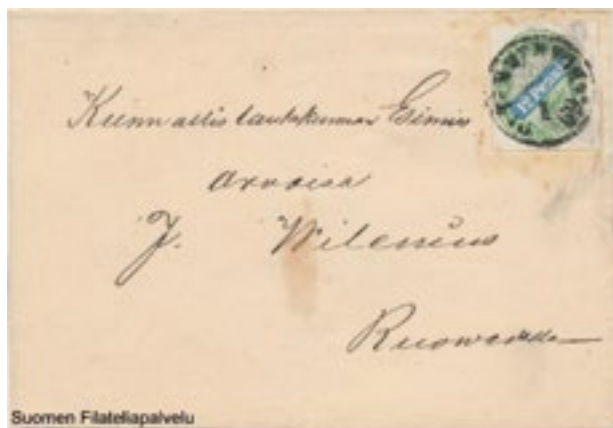 Kunnallislautakunnan Esimies
Arvoisa
J. Wilenius
Ruowedelle
Suomen Filateliapalvelu